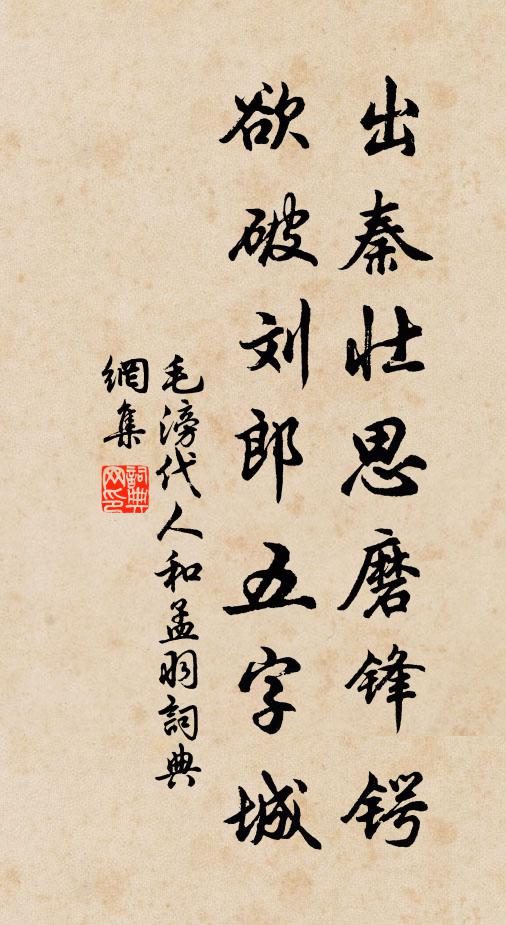 出秦壮思磨锋锷
欲破刘郎五字城
毛滂代人和孟明詞典
網集
詞典
网印